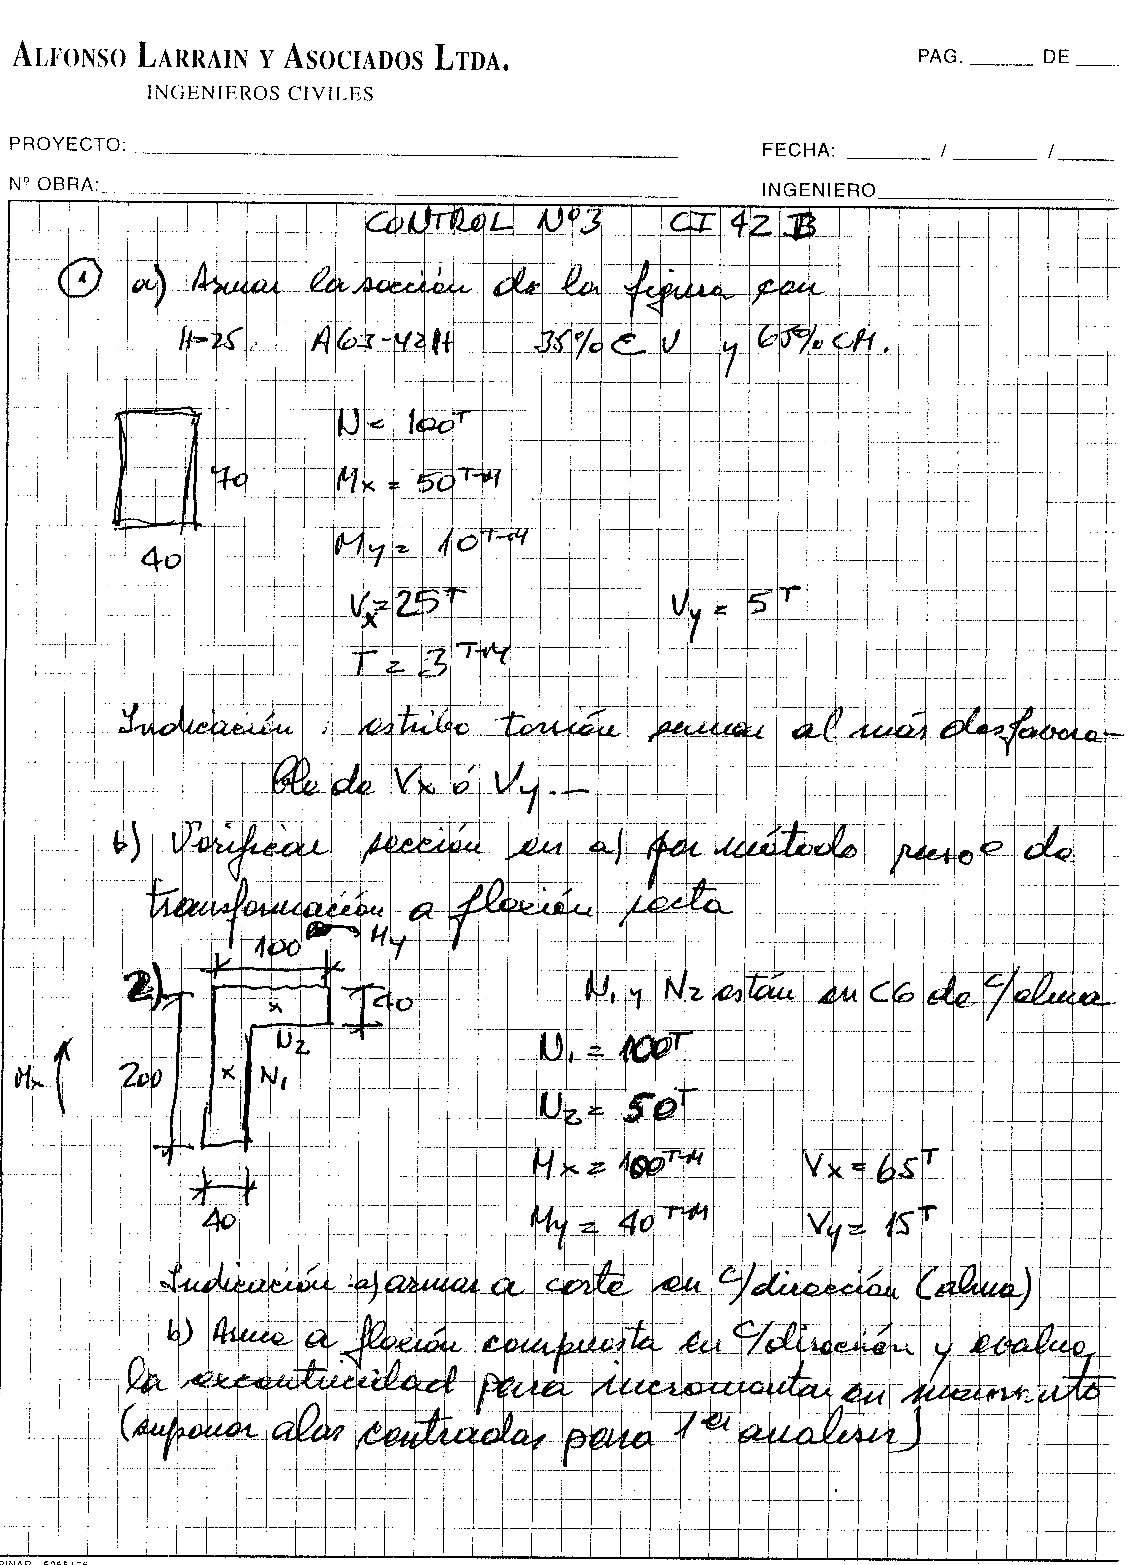 ALFONSO LARRAIN Y ASOCIADOS LTDA.
INGENIEROS CIVILES
PAG. ____ DE ____
PROYECTO:
FECHA: ____ / ____ / ____
Nº OBRA:
INGENIERO
CONTROL Nº3 CI 42 B
① a) Armar la sección de la figura con
H-25. A63-42H 35% C V y 65% CM.
N = 100 T
70
Mx = 50 T-M
40
My = 10 T-M
Vx = 25 T Vy = 5 T
T = 3 T-M
Indicación : estribo torsión sumar al más desfavora-
ble de Vx ó Vy.-
b) Verificar sección en a) por método de
transformación a flexión recta
100 My
2)
40
N1 y N2 están en CG de c/alma
x
N2
N1 = 100 T
Mx
200
x N1
N2 = 50 T
Mx = 100 T-M Vx = 65 T
40
My = 40 T-M Vy = 15 T
Indicación a) armar a corte en c/dirección (alma)
b) Arme a flexión compuesta en c/dirección y evalue
la excentricidad para incrementar en momento
(suponer alas centradas para 1er analisis)